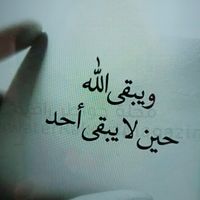 ويبقى الله
حين لا يبقى أحد